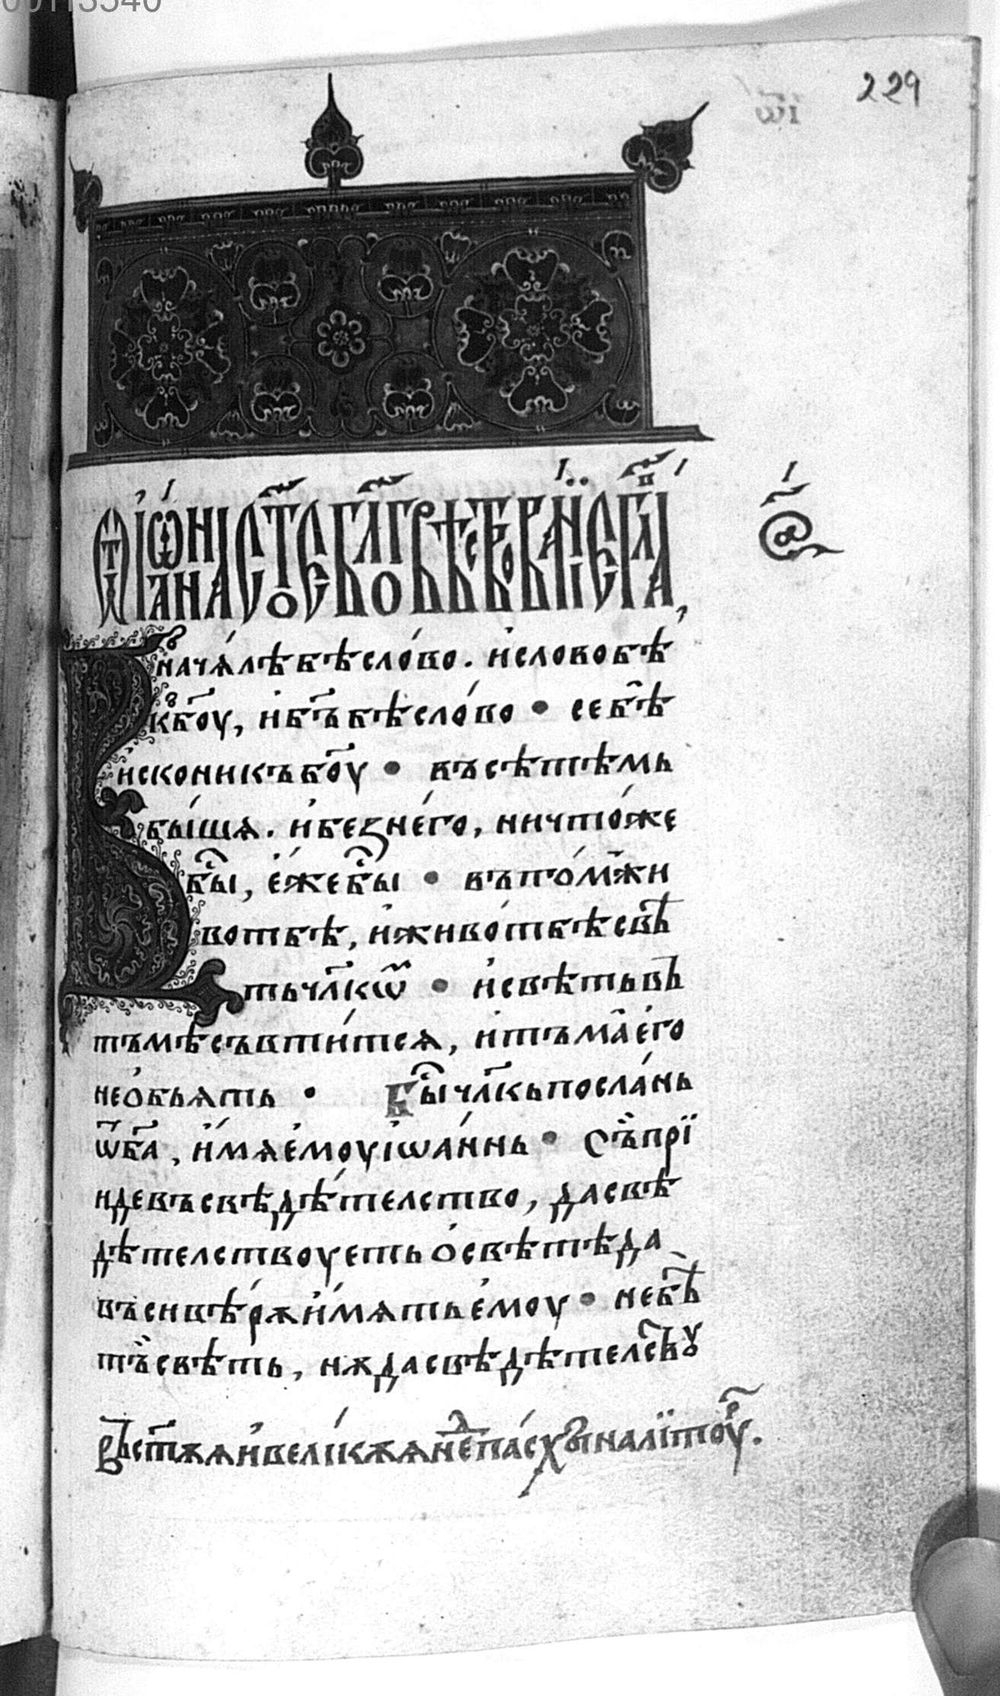 00113540
229
ѿі
Ѿ іѡанна ст҃ое бл҃говѣствованїе гл҃а а҃
Въначѧлѣ бѣ слово. и слово бѣ
къ б҃оу, и б҃ъ бѣ слово • се бѣ
искони къ б҃оу • въсѣ тѣмь
быщѧ. и без него, ничтоже
бы҃, еже бы҃ • въ томъ жи
вот бѣ, и живот бѣ свѣ
ть чл҃кѡм • и свѣть въ
тъмѣ съвтитсѧ, и тъма его
не обьѧть • Бы҃ чл҃кь посланъ
ѿ б҃а, имѧ емоу іѡаннь • Съ прї
иде въ свѣдѣтелство, да свѣ
дѣтелствоуеть о свѣтѣ да
въси вѣрѫ имѧть емоу • не бѣ
тъ свѣть, нѫ да свѣдѣтелствꙋ
въ ст҃ѫѧ и великѫѧ нед пасхы на лїтоур.